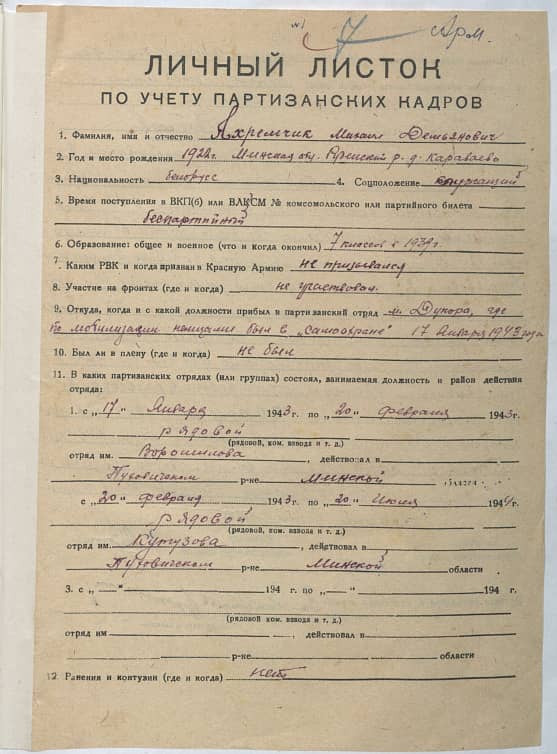 №1 7 Арм.
ЛИЧНЫЙ ЛИСТОК
ПО УЧЕТУ ПАРТИЗАНСКИХ КАДРОВ
1. Фамилия, имя и отчество Яхремчик Михаил Демьянович
2. Год и место рождения 1922г. Минская обл. р. д. Караваево
3. Национальность белорус 4. Соцположение служащий
5. Время поступления в ВКП(б) или ВЛКСМ № комсомольского или партийного билета
беспартийный
6. Образование: общее и военное (что и когда окончил) 7 классов в 1939г.
7. Каким РВК и когда призван в Красную Армию не призывался
8. Участие на фронтах (где и когда) не участвовал
9. Откуда, когда и с какой должности прибыл в партизанский отряд м. Дукора, где
по мобилизации немцами был в "самоохране" 17 Января 1943 года
10. Был ли в плену (где и когда) не был
11. В каких партизанских отрядах (или группах) состоял, занимаемая должность и район действия
отряда:
1. с „17" Января 1943 г. по „20" февраля 1943г.
рядовой
(рядовой, ком. взвода и т. д.)
отряд им. Ворошилова, действовал в
Пуховичском р-не Минской области
с „20" февраля 1943 г. по „20" Июля 1944г.
рядовой
(рядовой, ком. взвода и т. д.)
отряд им. Кутузова, действовал в
Пуховичском р-не Минской области
3. с „—" 194 г. по „—" 194 г.
(рядовой, ком. взвода и т. д.)
отряд им , действовал в
р-не области
12. Ранения и контузии (где и когда) нет